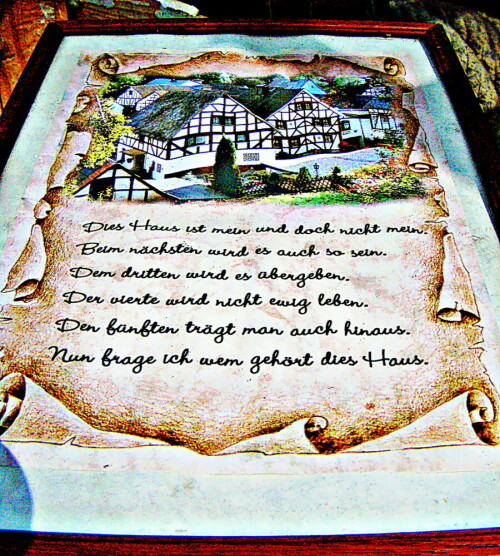 Dies Haus ist mein und doch nicht mein.
Beim nächsten wird es auch so sein.
Dem dritten wird es abergeben.
Der vierte wird nicht ewig leben.
Den fünften trägt man auch hinaus.
Nun frage ich wem gehört dies Haus.